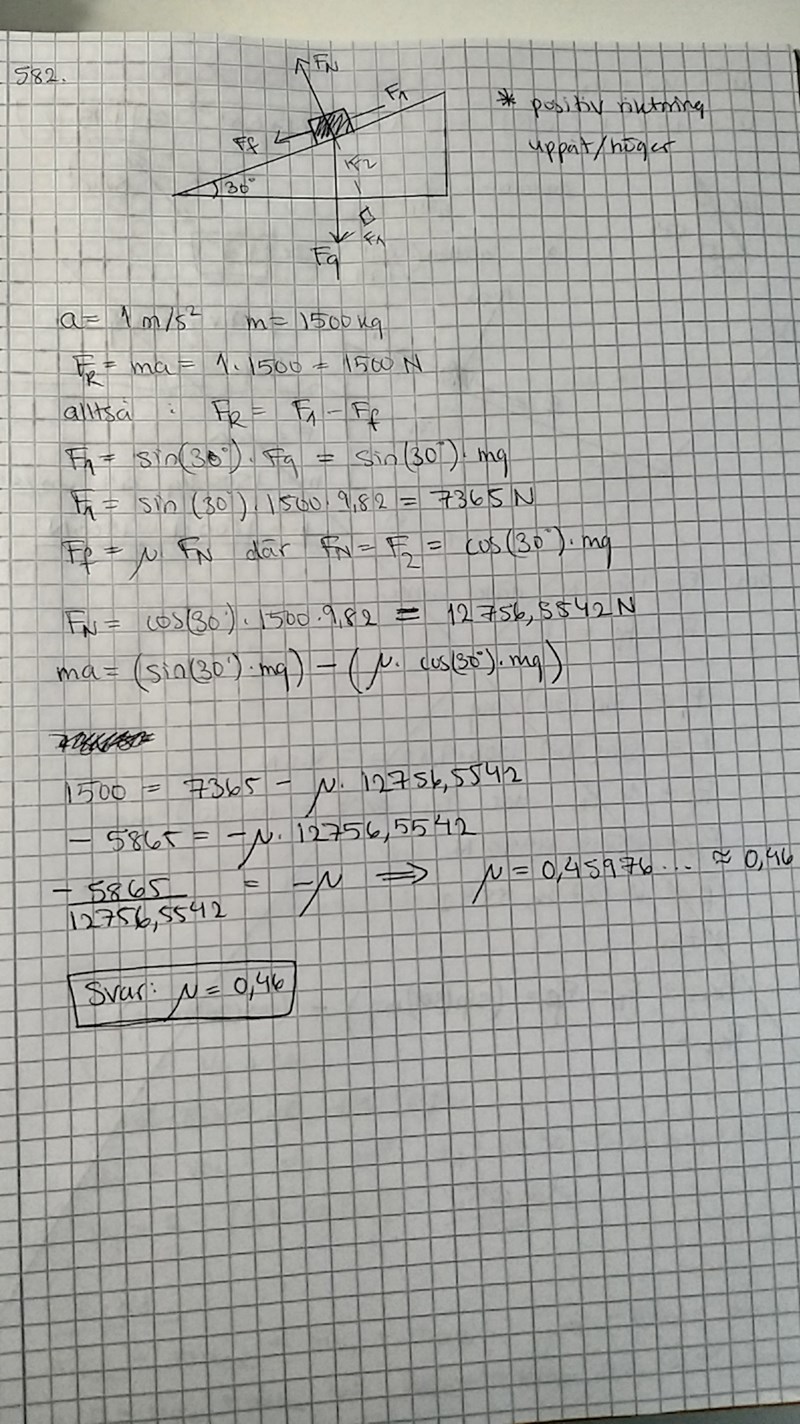 582.
FN
F1
* positiv riktning
uppåt/höger
Ff
30°
F2
F1
Fg
a = 1 m/s² m = 1500 kg
FR = ma = 1 · 1500 = 1500 N
alltså : FR = F1 - Ff
F1 = sin(30°) · Fg = sin(30°) · mg
F1 = sin (30°) · 1500 · 9,82 = 7365 N
Ff = μ · FN där FN = F2 = cos(30°) · mg
FN = cos(30°) · 1500 · 9,82 = 12756,5542 N
ma = (sin(30°) · mg) - (μ · cos(30°) · mg)
1500 = 7365 - μ · 12756,5542
- 5865 = -μ · 12756,5542
- 5865 / 12756,5542 = -μ ⇒ μ = 0,45976... ≈ 0,46
Svar: μ = 0,46